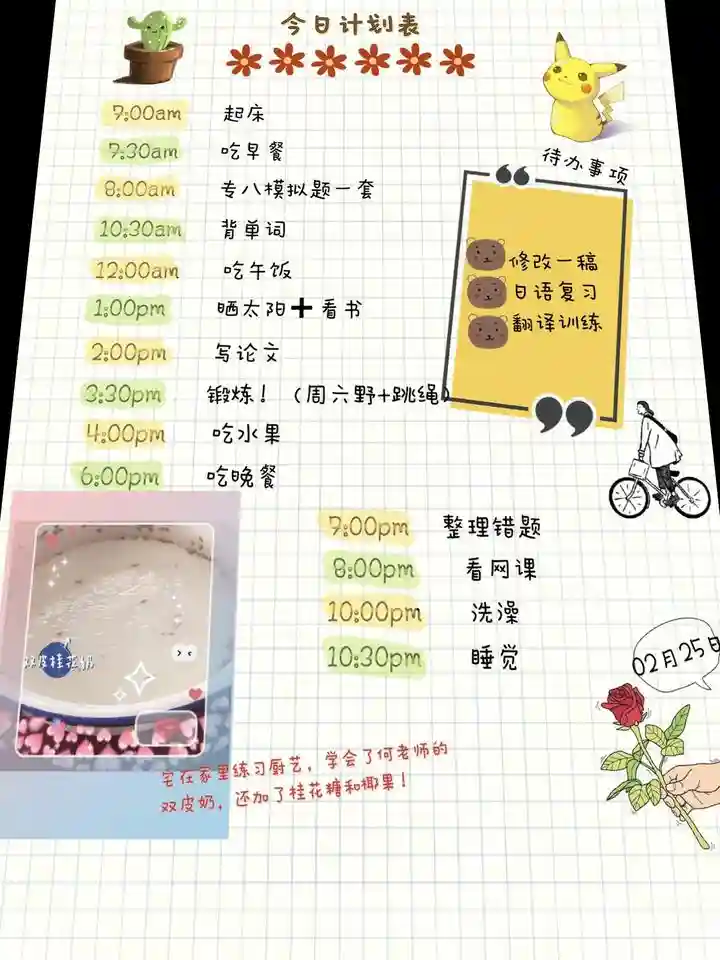 今日计划表
7:00am 起床
7:30am 吃早餐
8:00am 专八模拟题一套
10:30am 背单词
12:00am 吃午饭
1:00pm 晒太阳➕看书
2:00pm 写论文
3:30pm 锻炼！（周六野+跳绳）
4:00pm 吃水果
6:00pm 吃晚餐
待办事项
修改一稿
日语复习
翻译训练
7:00pm 整理错题
8:00pm 看网课
10:00pm 洗澡
10:30pm 睡觉
02月25日
双皮桂花奶
宅在家里练习厨艺，学会了何老师的
双皮奶，还加了桂花糖和椰果！